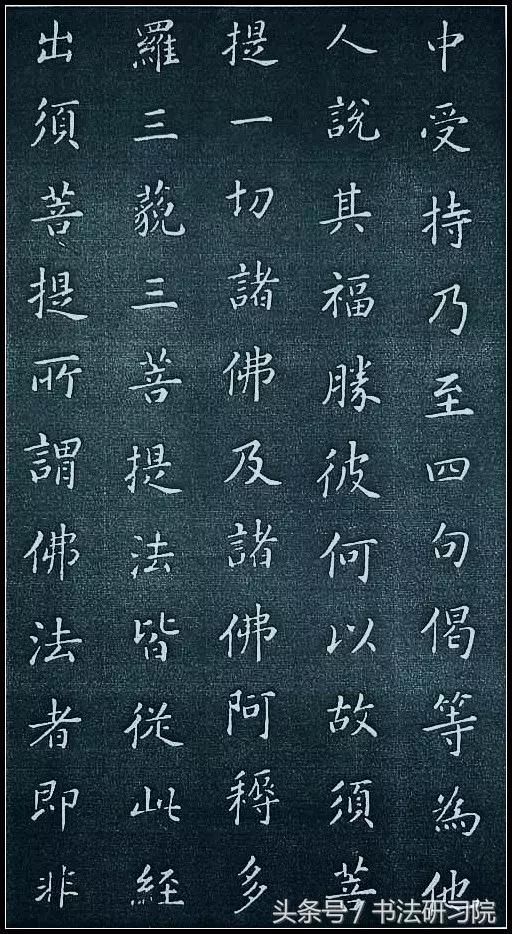 中受持乃至四句偈等為他
人說其福勝彼何以故須菩
提一切諸佛及諸佛阿耨多
羅三藐三菩提法皆從此經
出須菩提所謂佛法者即非
头条号7 书法研习院